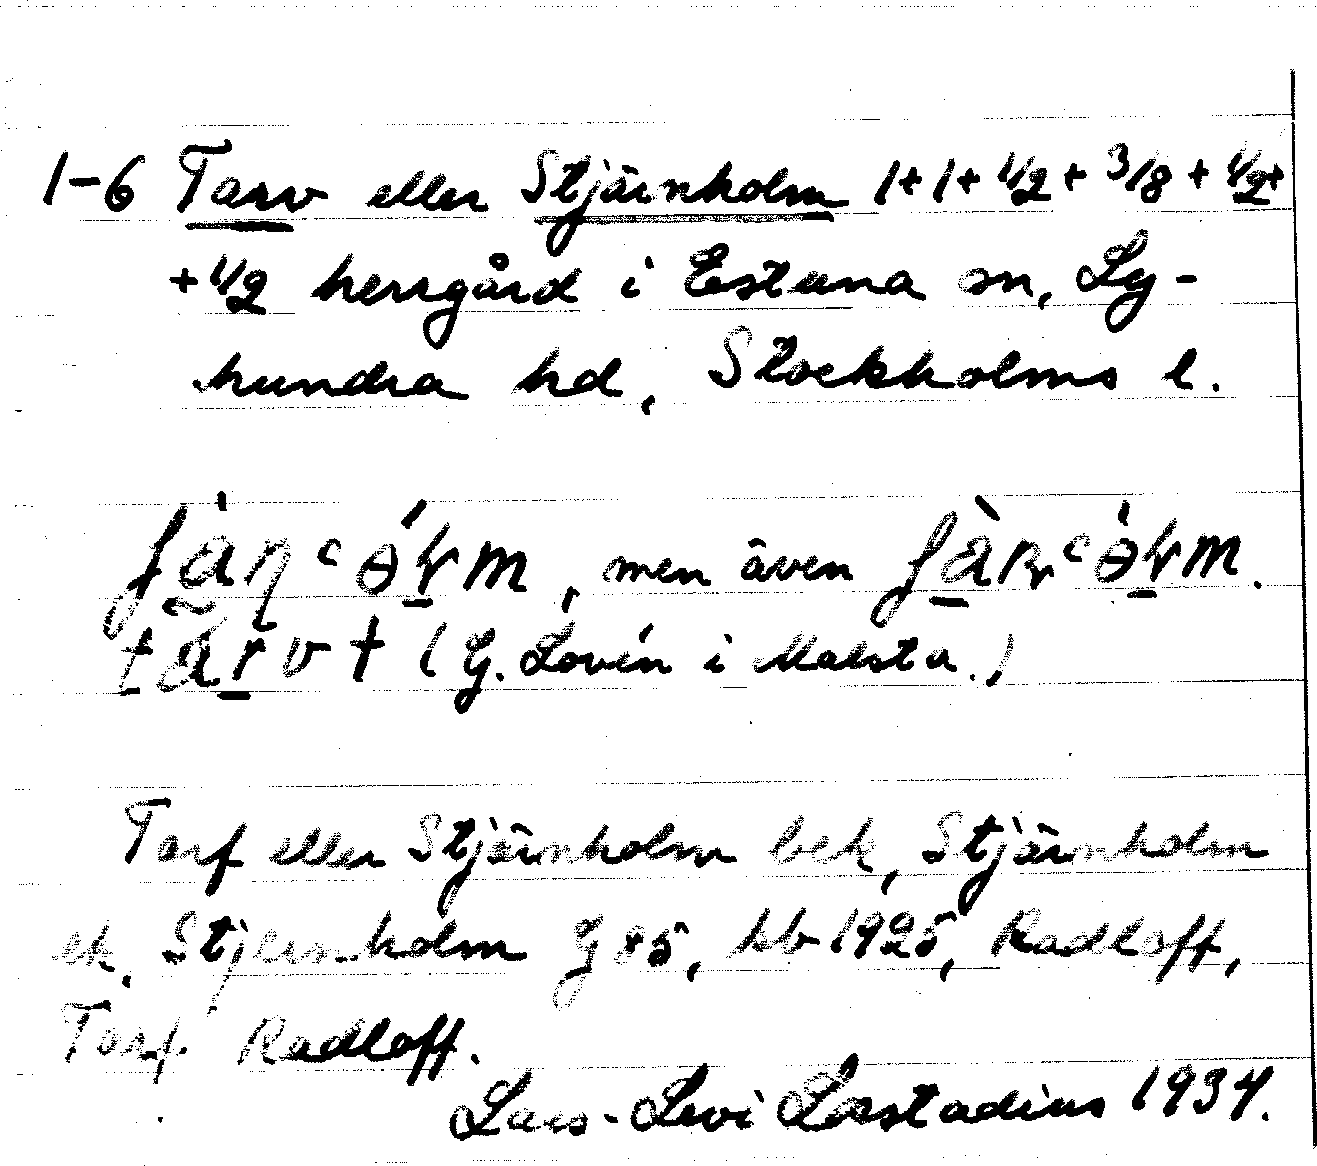 1-6 Tarv eller Stjärnholm 1+1+1/2+3/8+1/2+
+1/2 herrgård i Estuna sn, Ly-
hundra hd, Stockholms l.
men även
(G. Lovén i Malsta.)
Tarf eller Stjärnholm bek, Stjärnholm
ek, Stjernholm G 85, kb 1925, Radloff,
Tarf. Radloff.
Lars-Levi Læstadius 1934.